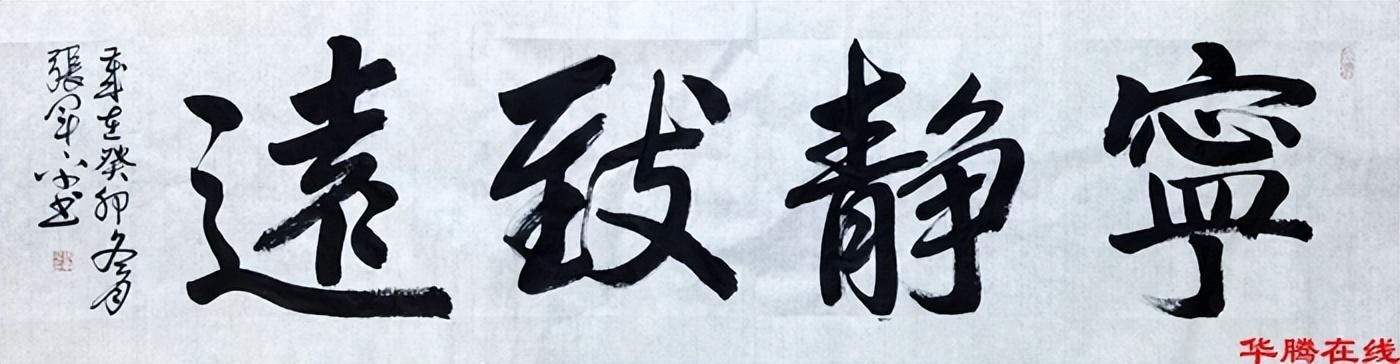 寧静致遠
歲在癸卯冬月
張军书
华腾在线